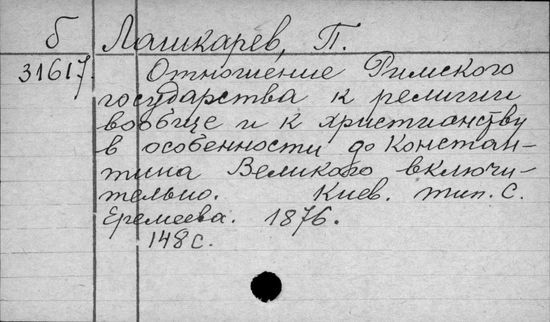 б Лашкарев, П.
31617 Отношение Римского
государства к религии
вообще и к христианству
в особенности до Констан-
тина Великого включи-
тельно. Киев. тип. С.
Еремеева. 1876.
148 с.